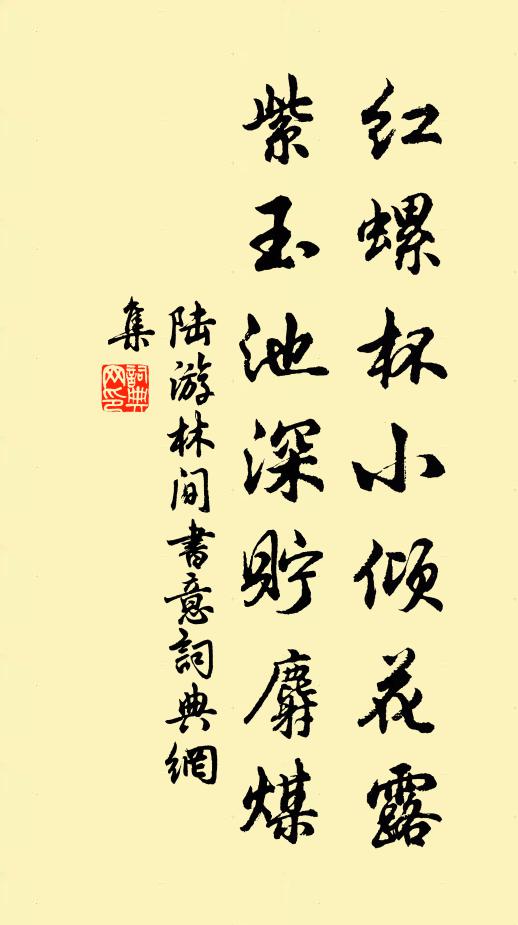 红螺杯小倾花露
紫玉池深贮麝煤
陆游林间书意词典網
集
詞典
网印